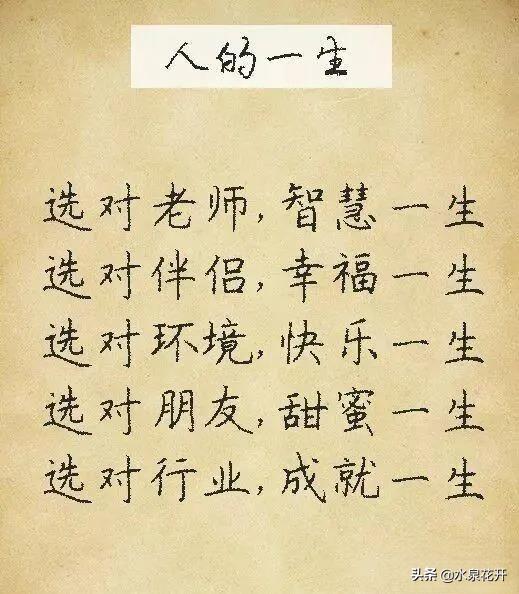 人的一生
选对老师,智慧一生
选对伴侣,幸福一生
选对环境,快乐一生
选对朋友,甜蜜一生
选对行业,成就一生
头条 @水泉花开